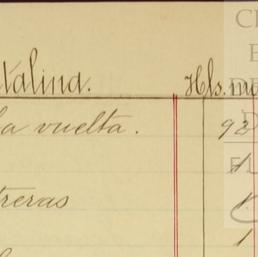 talina. Hls. m
la vuelta. 92
1
treras 1.
1